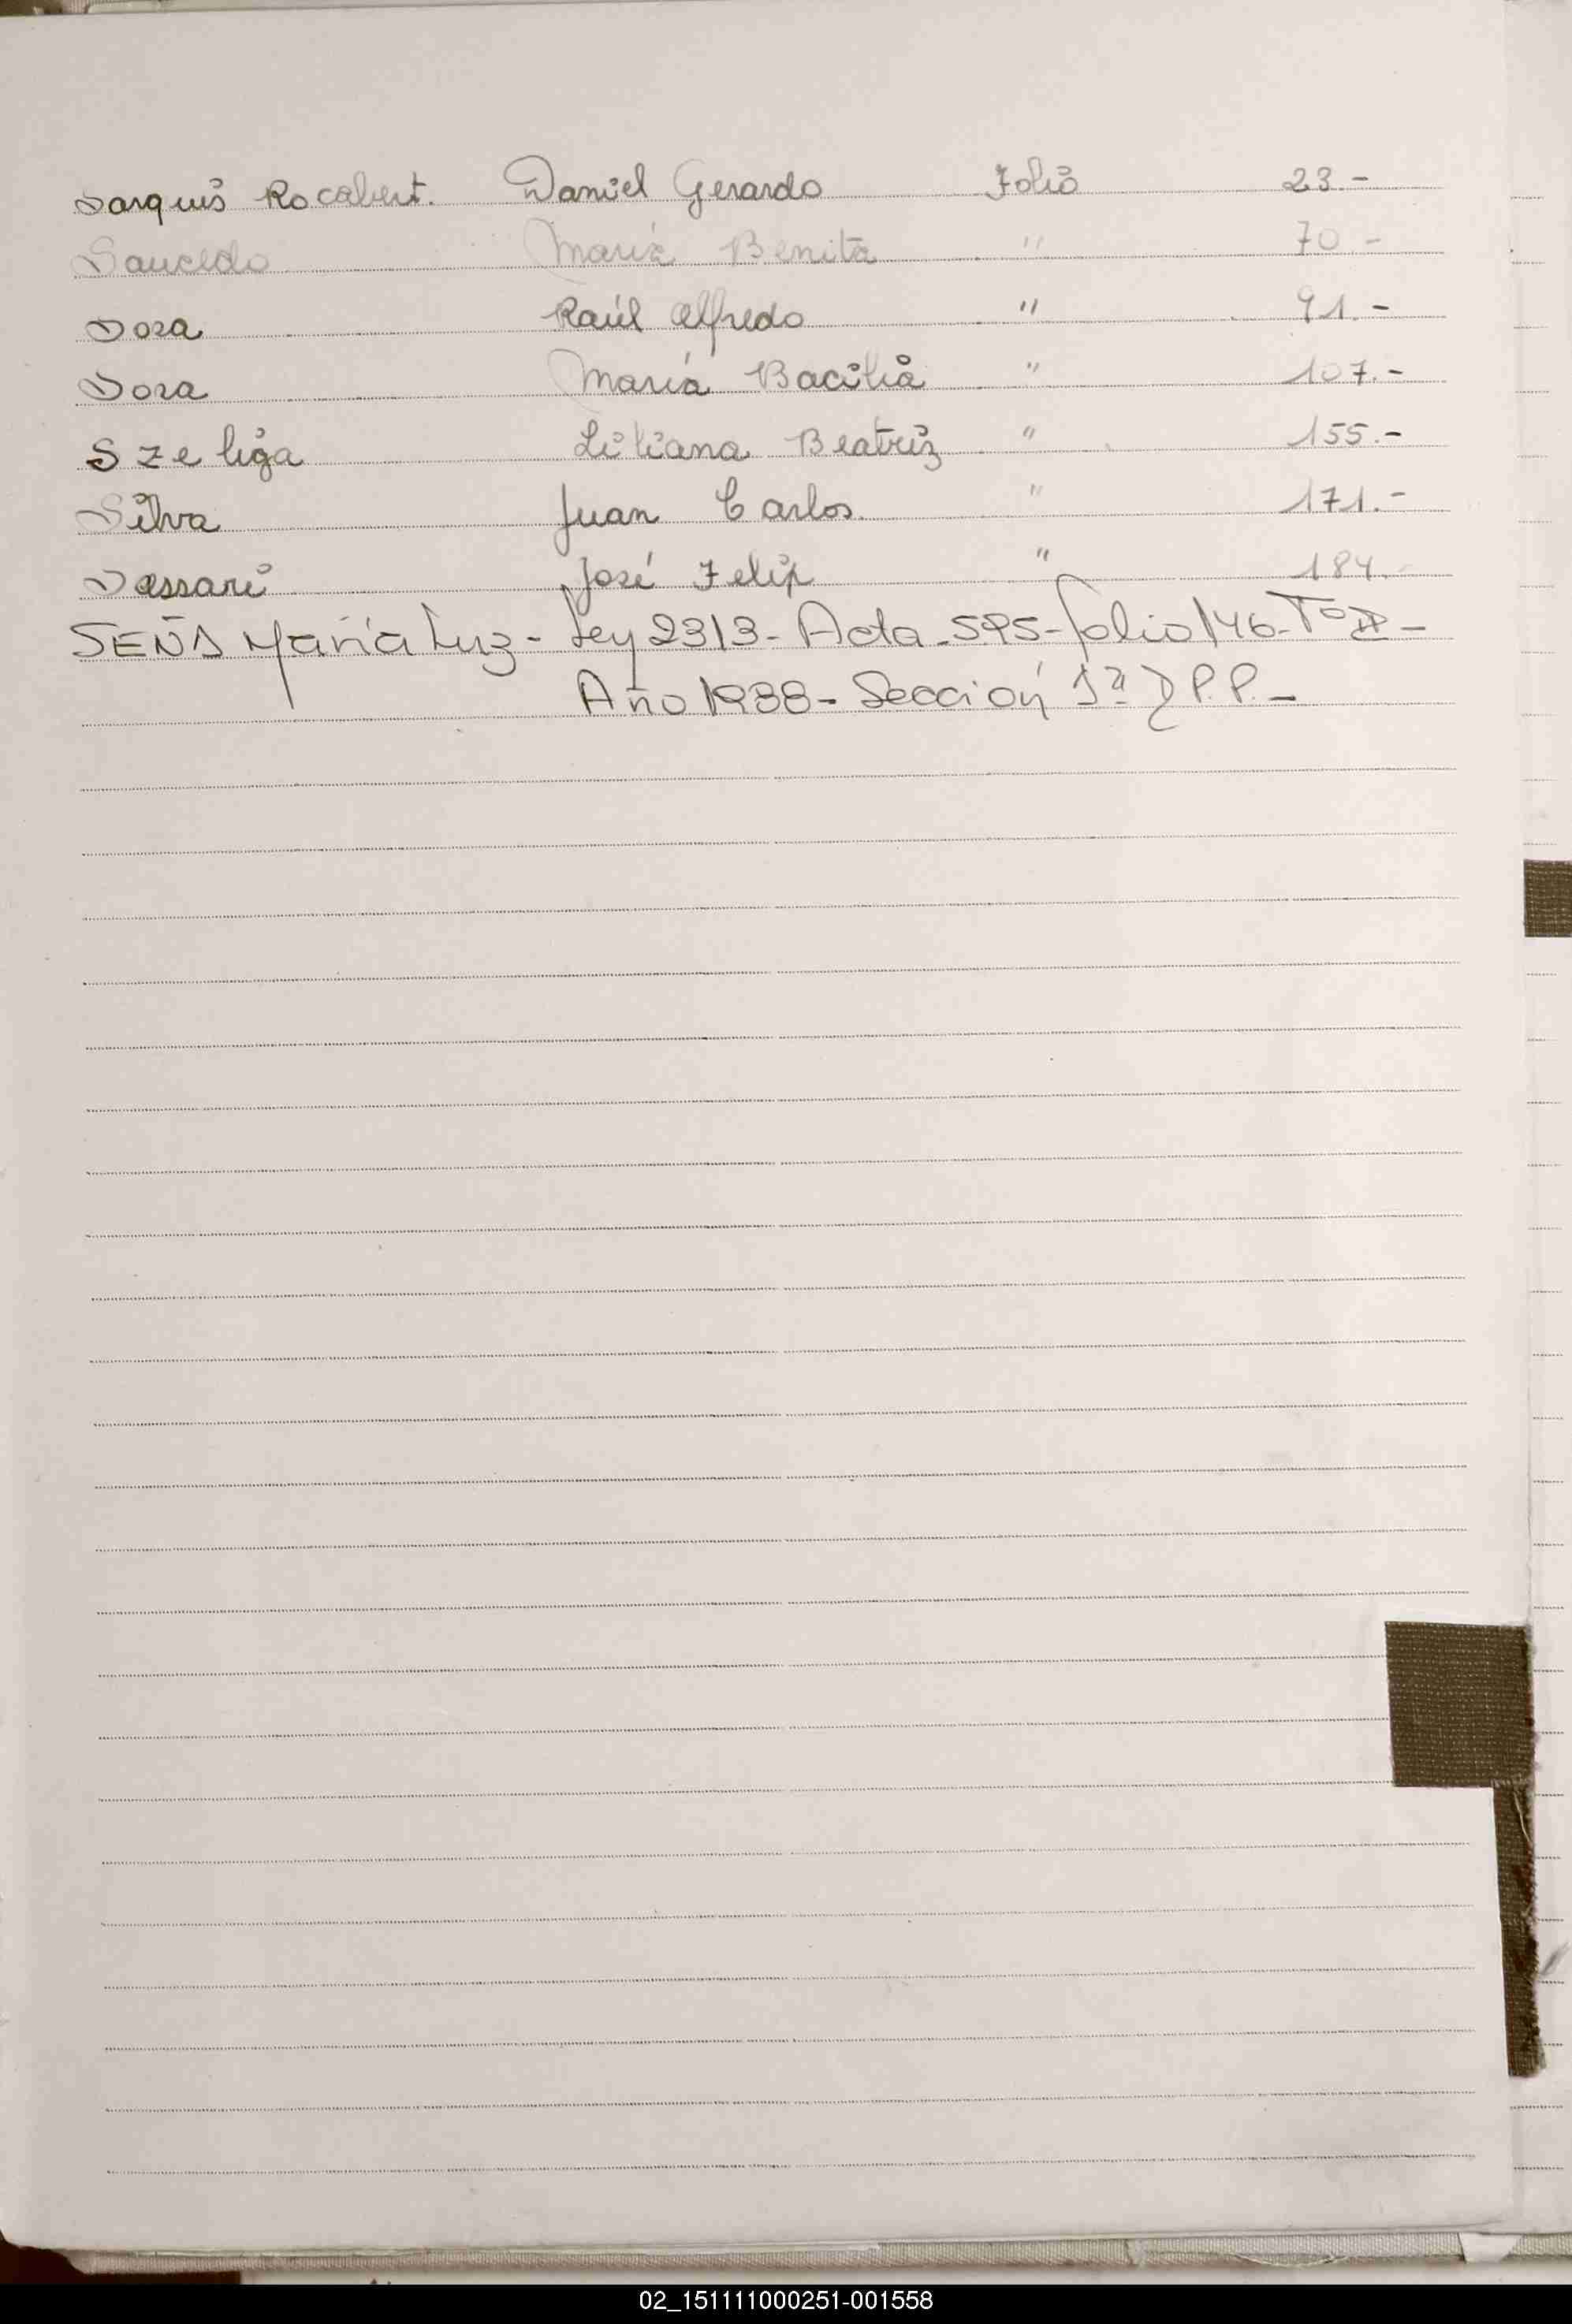 Sarquis Rocabert. Daniel Gerardo Folio 23.-
Saucedo María Benita " 70.-
Sosa Raúl Alfredo " 91.-
Sosa María Bacilia " 107.-
Szeliga Liliana Beatriz " 155.-
Silva Juan Carlos " 171.-
Sassari José Felix " 184.-
SEÑA María Luz - Ley 2313 - Acta - 595 - folio 146 - Tº II -
Año 1988 - Sección 1ª D P.P. -
02_151111000251-001558